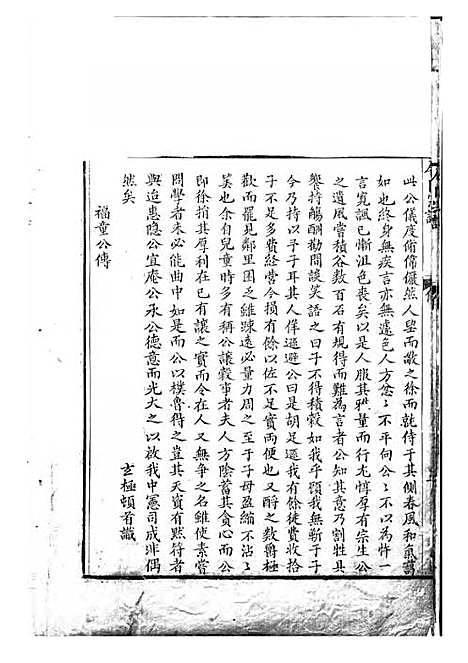 此公儀度俯偉儼然人望而敬之徐而就侍于其側春風和氣藹
如也終身無疾言亦無遽色人方忿忿不平何公公不為忤一
言寬諷已慚沮色喪矣以是人服其雅量而行尤惇厚有宗生公
之遺風嘗積谷數百石有規得而難為言者公知其意乃割牲具
饗持觴酬勸問談笑語之曰子不得積穀如我乎須我無靳于子
今乃持以予子耳其人佯遜避公曰是胡足遜我有餘徒費收拾
子不足多費經營今損有餘以佐不足實兩便也又滿酌之數爵極
歡而罷見鄰里困乏雖踈遠必量力周之至于子母盈縮不沾沾
筭也余自兒童時多有稱公讓穀事者夫人方陰蓄其貪心而公
即徐捐其厚利在已有讓之實而令在人又無爭之名雖使素嘗
問學者未必能曲中如是而公以樸魯得之豈其天資有默符者
與追惠隱公宜庵公承公德意而光大之以故我中憲司成非偶
然矣
玄極頓首識
福童公傳